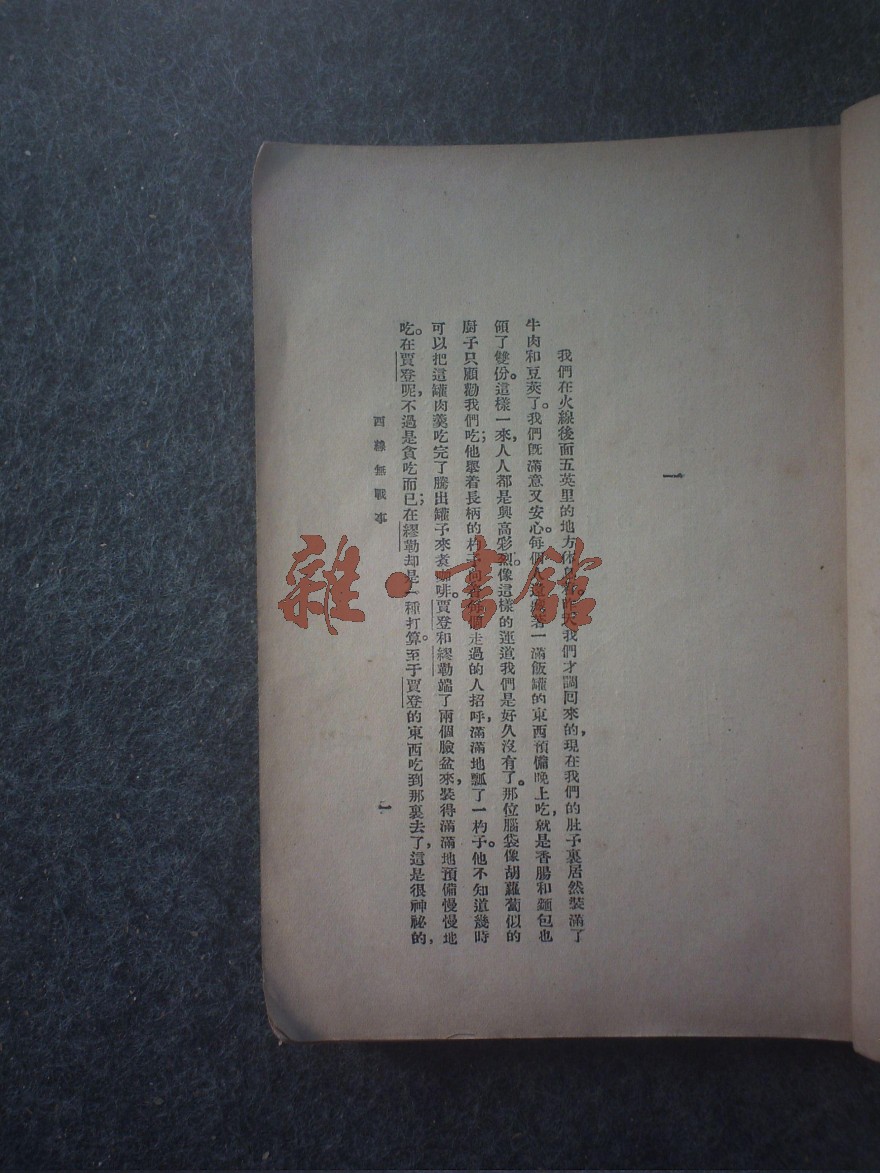 一
我們在火線後面五英里的地方休息着。昨天我們才調囘來的，現在我們的肚子裏居然裝滿了
牛肉和豆莢了。我們旣滿意又安心。每個人還藏著一滿飯罐的東西預備晚上吃，就是香腸和麵包也
領了雙份。這樣一來，人人都是興高彩烈。像這樣的運道我們是好久沒有了。那位腦袋像胡蘿蔔似的
廚子只顧勸我們吃；他舉着長柄的杓子向着走過的人招呼，滿滿地瓢了一杓子。他不知道幾時
可以把這罐肉羹吃完了騰出罐子來煮咖啡。賈登和繆勒端了兩個臉盆來，裝得滿滿地預備慢慢地
吃。在賈登呢，不過是貪吃而已；在繆勒却是一種打算。至于賈登的東西吃到那裏去了，這是很神祕的，
西線無戰事
一
雜·書館